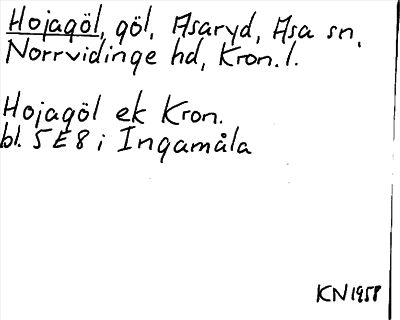 Hojagöl, göl, Asaryd, Asa sn,
Norrvidinge hd, Kron. l.
Hojagöl ek Kron.
bl. 5E8 i Ingamåla
KN 1958